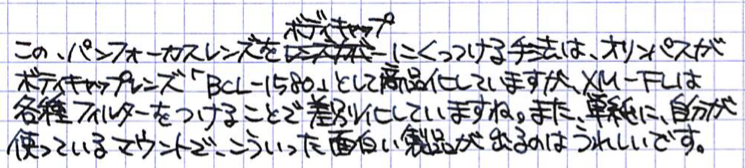 ボディキャップ
この、パンフォーカスレンズをレンズカバーにくっつける手法は、オリンパスが
ボディキャップレンズ「BCL-1580」として商品化していますが、XM-FLは
各種フィルターをつけることで差別化していますね。また、単純に、自分が
使っているマウントで、こういった面白い製品が出るのはうれしいです。